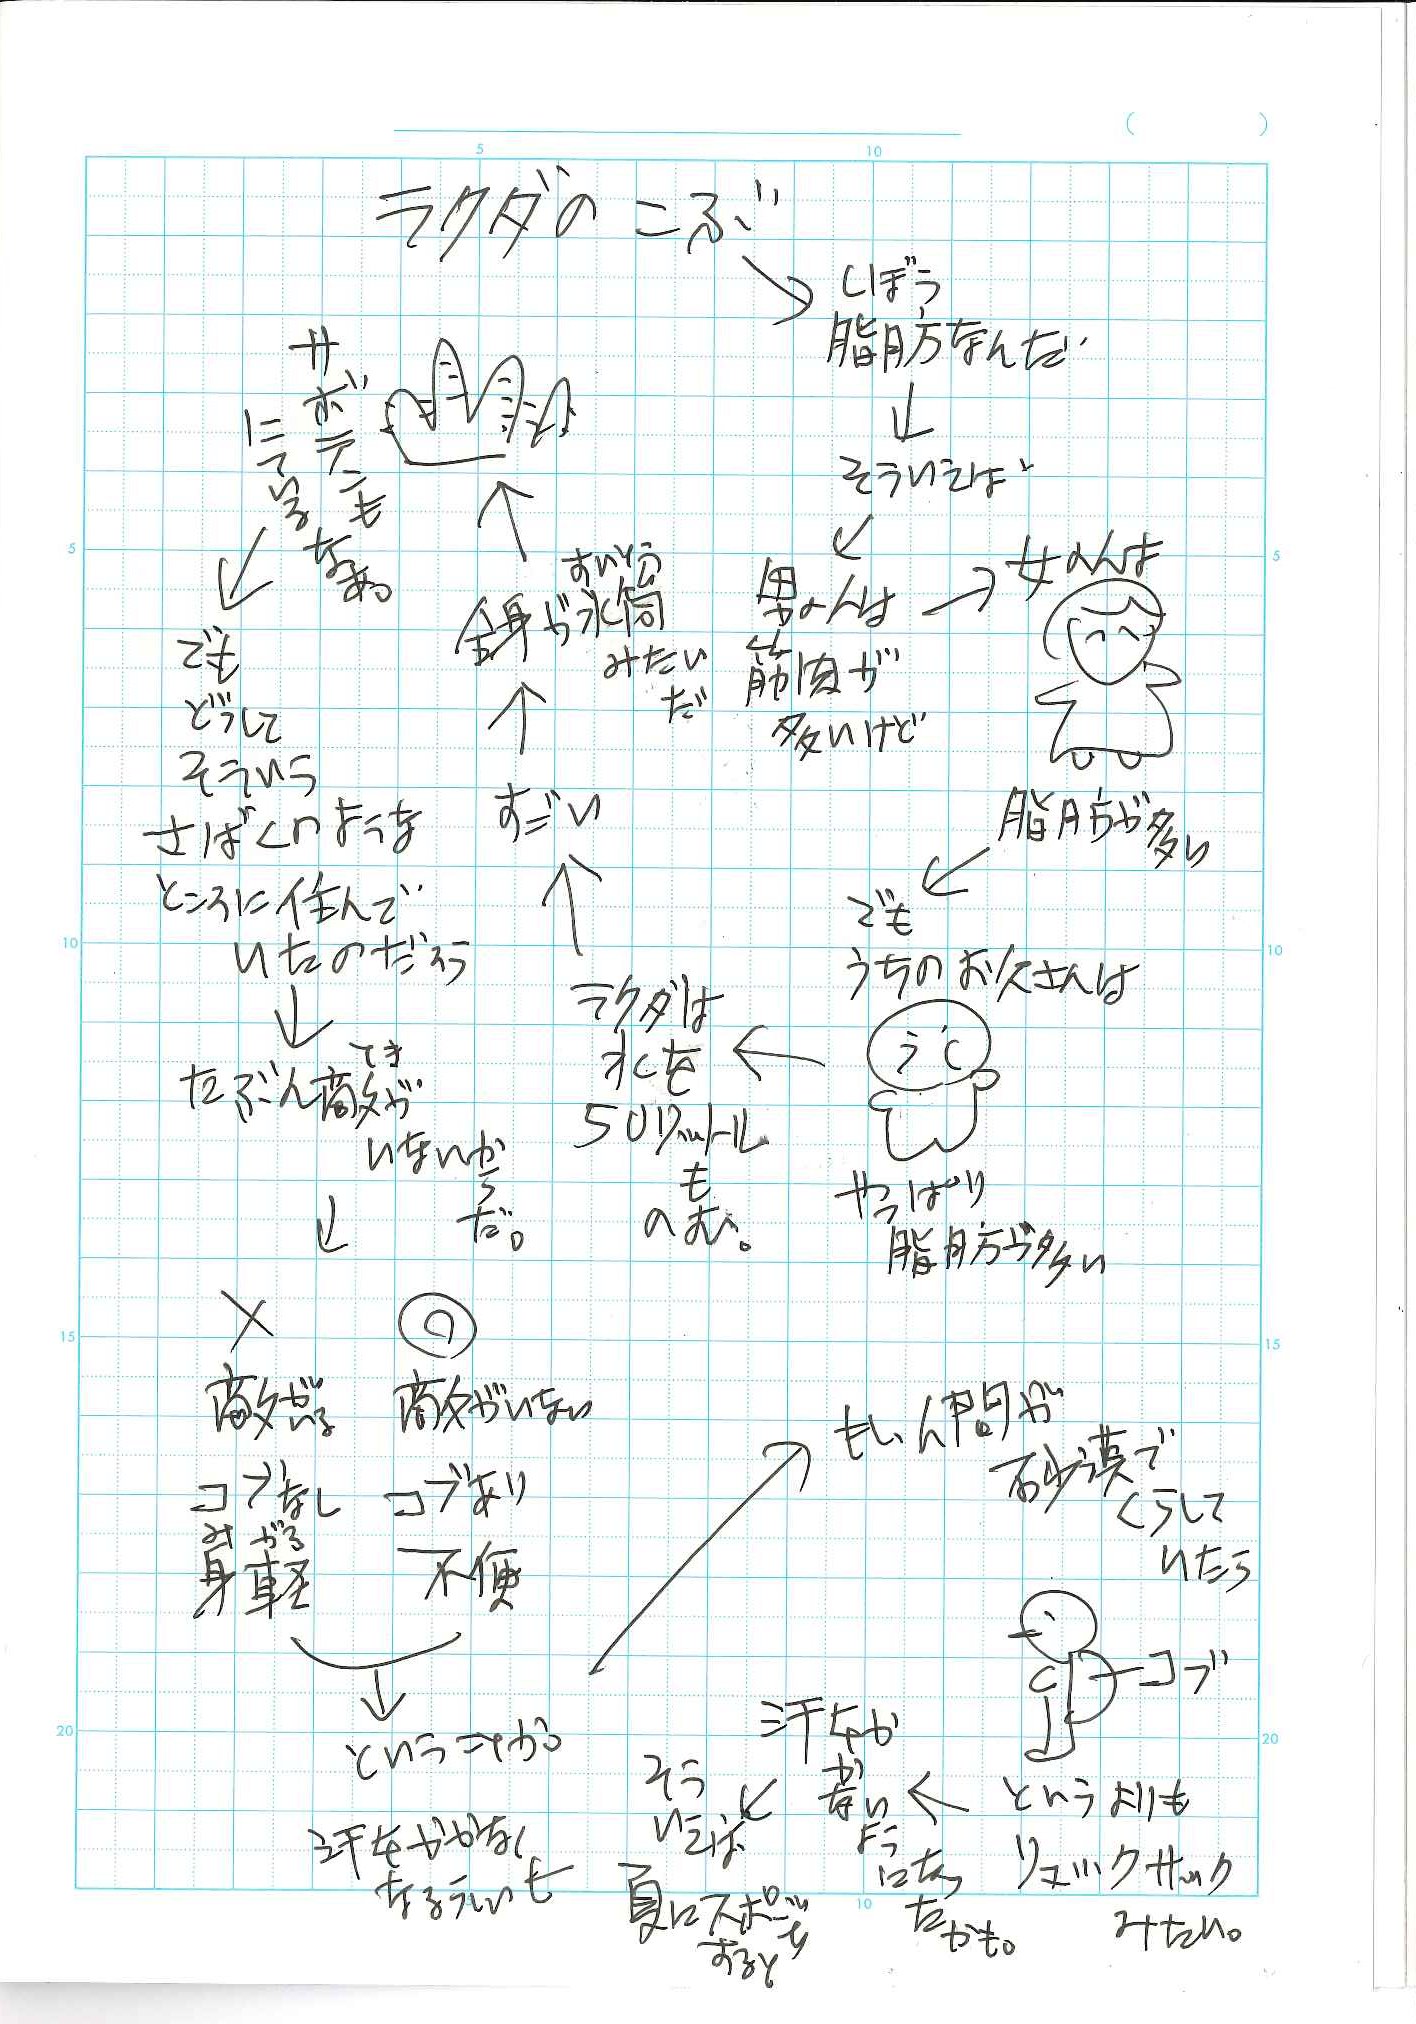 ラクダの こぶ
しぼう
脂肪なんだ
そういえば
男の人は
筋肉が
多いけど
女の人は
脂肪が多い
でも
うちのお父さんは
やっぱり
脂肪が多い
ラクダは
水を
50リットル
も
のむ。
すごい
すいとう
全身が水筒
みたい
だ
サボテンも
にている
なあ。
でも
どうして
そういう
さばくのような
ところに住んで
いたのだろう
てき
たぶん敵が
いないか
ら
だ。
×
◎
敵がいる
敵がいない
コブなし
コブあり
みがる
身軽
不便
ということか。
もし人間が
砂漠で
くらして
いたら
コブ
というよりも
リュックサック
みたい。
汗をか
かない
よう
になっ
たかも。
そう
いえば
夏にスポーツを
すると
汗をかかなく
なるらしい
5
10
5
5
10
10
15
15
20
20
10
( )